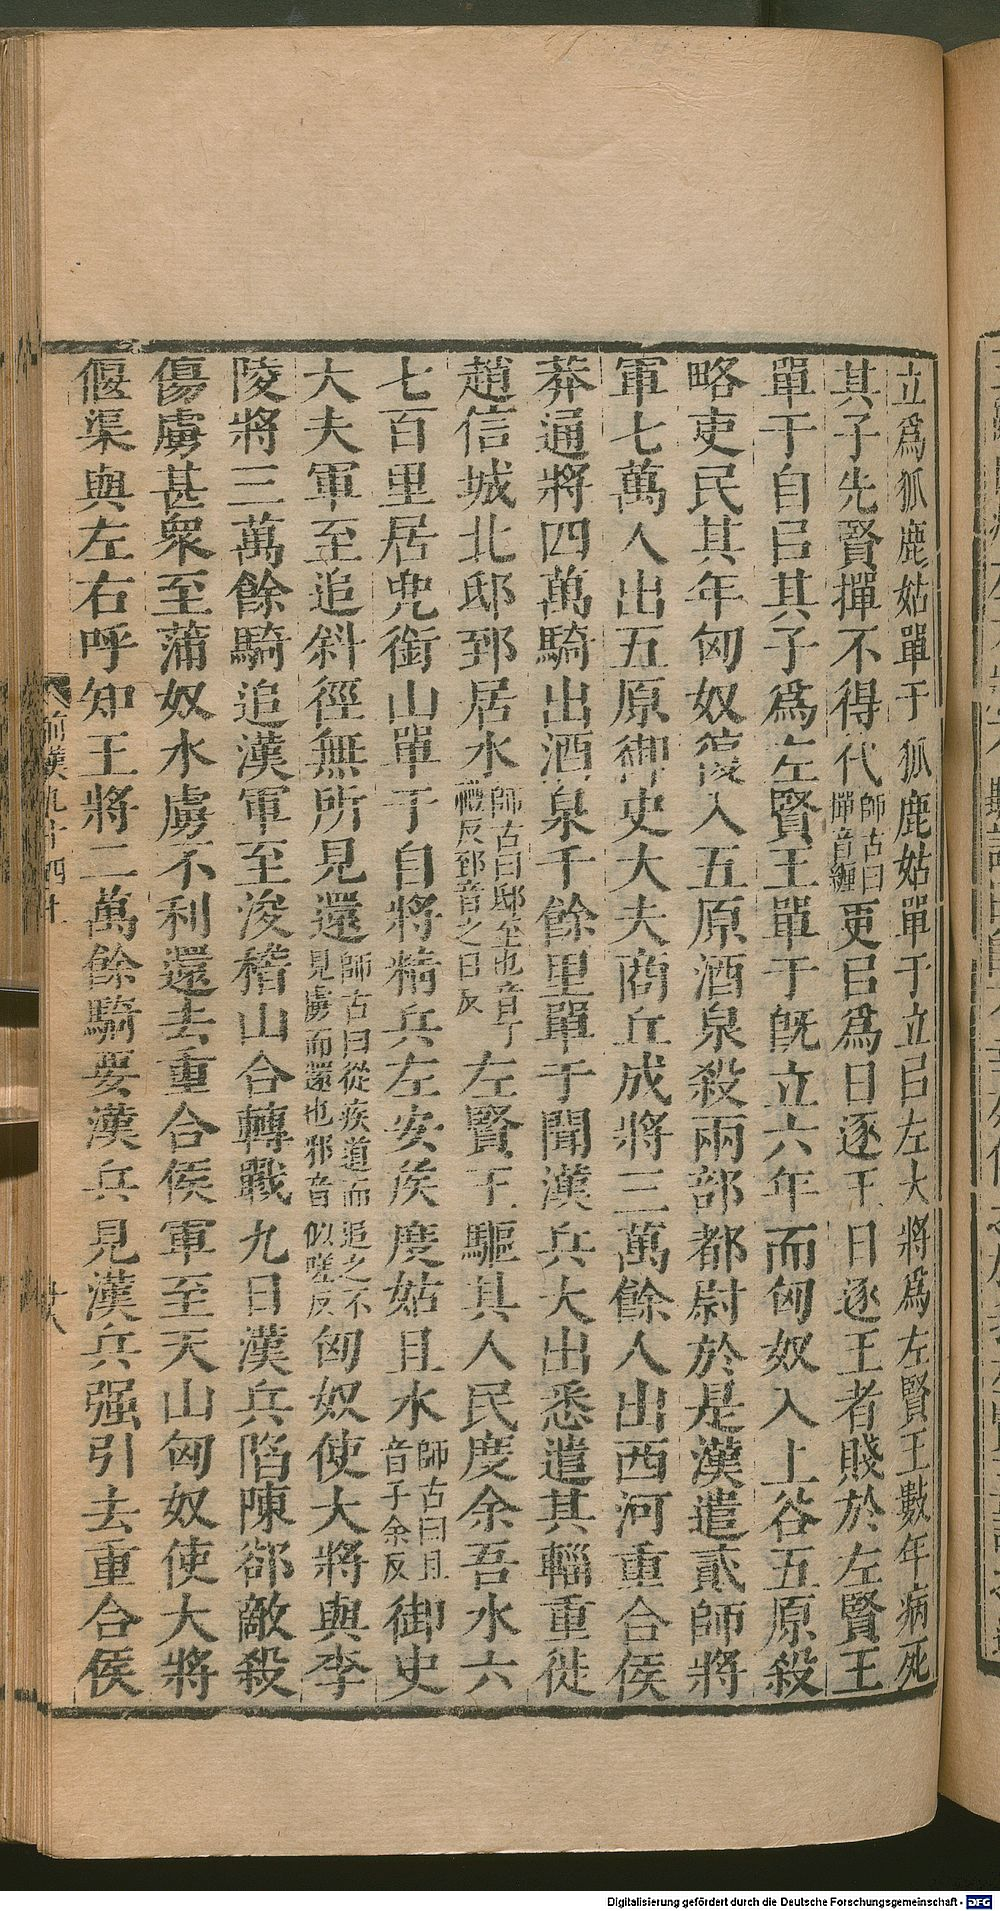 立爲狐鹿姑單于狐鹿姑單于立㠯左大將爲左賢王數年病死
其子先賢撣不得代師古曰撣音纏更㠯爲日逐王日逐王者賤於左賢王
單于自㠯其子爲左賢王單于旣立六年而匈奴入上谷五原殺
略吏民其年匈奴復入五原酒泉殺兩部都尉於是漢遣貳師將
軍七萬人出五原御史大夫商丘成將三萬餘人出西河重合侯
莽通將四萬騎出酒泉千餘里單于聞漢兵大出悉遣其輜重徙
趙信城北邸郅居水師古曰邸至也音丁禮反郅音之日反左賢王驅其人民度余吾水六
七百里居兜銜山單于自將精兵左安侯度姑且水師古曰且音子余反御史
大夫軍至追斜徑無所見還師古曰從疾道而追之不見虜而還也邪音似嗟反匈奴使大將與李
陵將三萬餘騎追漢軍至浚稽山合轉戰九日漢兵陷陳卻敵殺
傷虜甚衆至蒲奴水虜不利還去重合侯軍至天山匈奴使大將
偃渠與左右呼知王將二萬餘騎要漢兵見漢兵强引去重合侯
前漢九十四上
廿八
Digitalisierung gefördert durch die Deutsche Forschungsgemeinschaft - DFG